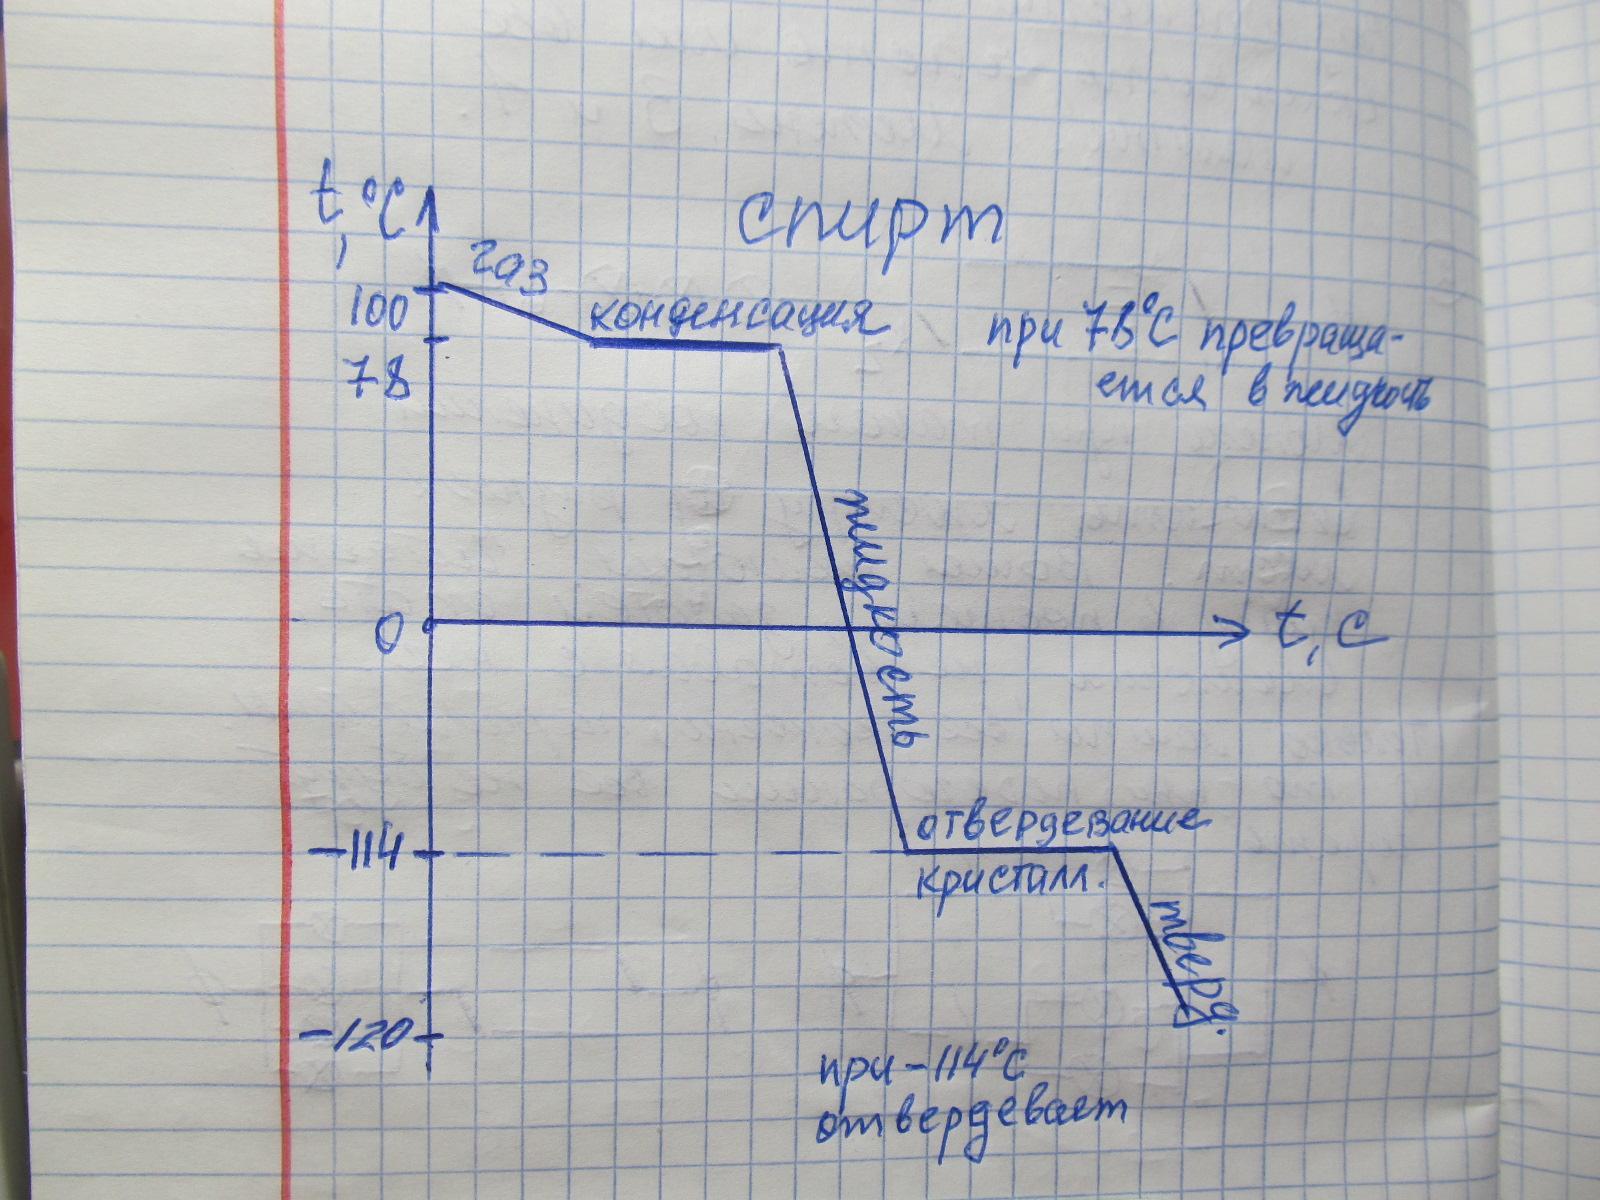 t, °C
спирт
газ
100
конденсация
при 78°С превраща-
ется в жидкость
78
жидкость
0
t, c
отвердевание
-114
кристалл.
тверд.
-120
при -114°С
отвердевает